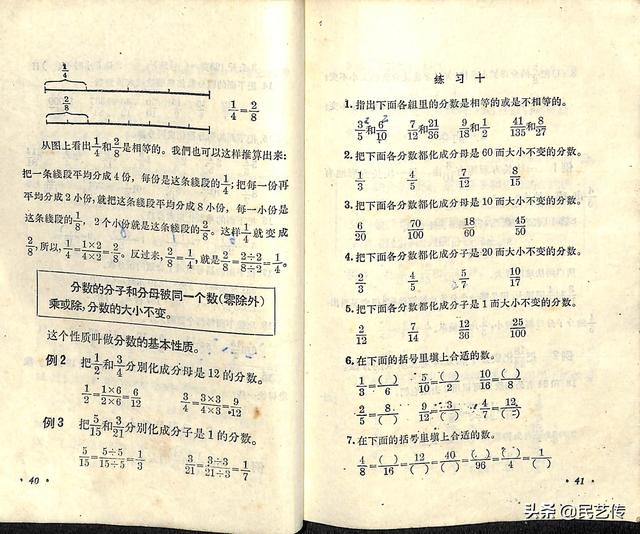 1/4
2/8
1/4=2/8
从图上看出1/4和2/8是相等的。我們也可以这样推算出来：
把一条綫段平均分成4份，每份是这条綫段的1/4；把每一份再
平均分成2小份，就把这条綫段平均分成8小份，每一小份是
这条綫段的1/8，2个小份就是这条綫段的2/8。这样1/4就变成
2/8，所以，1/4=1×2/4×2=2/8。反过来，2/8=1/4，就是2/8=2÷2/8÷2=1/4。
分数的分子和分母被同一个数(零除外)
乘或除，分数的大小不变。
这个性质叫做分数的基本性质。
例2 把1/2和3/4分别化成分母是12的分数。
1/2=1×6/2×6=6/12 3/4=3×3/4×3=9/12
例3 把5/15和3/21分别化成分子是1的分数。
5/15=5÷5/15÷5=1/3 3/21=3÷3/21÷3=1/7
· 40 ·
练习十
1. 指出下面各組里的分数是相等的或是不相等的。
3/5和6/10 7/12和21/36 9/18和1/2 41/135和8/37
2. 把下面各分数都化成分母是60而大小不变的分数。
1/3 4/5 7/12 8/15
3. 把下面各分数都化成分母是10而大小不变的分数。
6/20 70/100 18/60 45/50
4. 把下面各分数都化成分子是20而大小不变的分数。
2/3 4/5 5/7 10/17
5. 把下面各分数都化成分子是1而大小不变的分数。
2/12 7/14 12/36 25/100
6. 在下面的括号里填上合适的数。
1/3=( )/6 5/10=( )/2 10/16=( )/8
2/5=8/( ) 9/12=3/( ) 4/7=12/( )
7. 在下面的括号里填上合适的数。
4/8=( )/16=12/( )=40/( )=( )/96=( )/4=1/( )
· 41 ·
头条 @民艺传